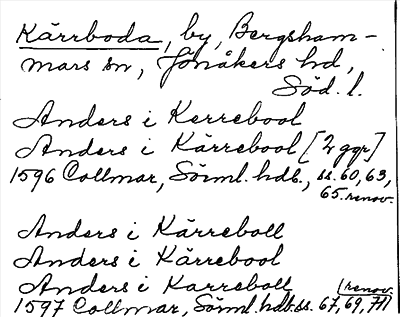 Kärrboda, by, Bergsham-
mars sn, Jönåkers hd,
Söd. l.
Anders i Kerrebool
Anders i Kärrebool [2 ggr]
1596 Collmar, Sörml. hdb., ss. 60, 63,
65. renov.
Anders i Kärreboll
Anders i Kärrebool
Anders i Karreboll (renov.
1597 Collmar, Sörml. hdb. ss. 67, 69, 71)